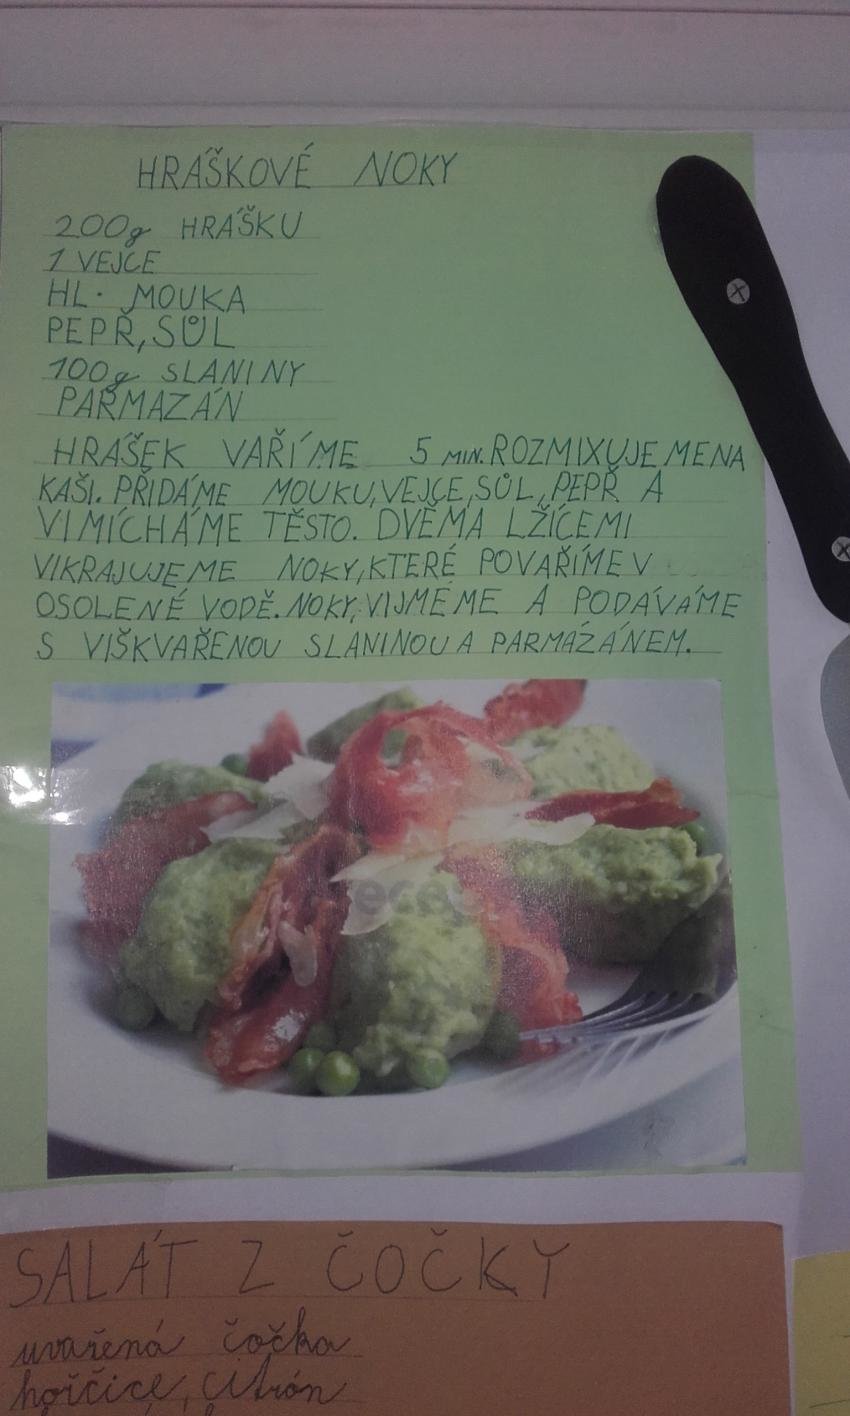 HRÁŠKOVÉ NOKY
200g HRÁŠKU
1 VEJCE
HL. MOUKA
PEPŘ, SŮL
100g SLANINY
PARMAZÁN
HRÁŠEK VAŘÍME 5 MIN. ROZMIXUJEMENA
KAŠI. PŘIDÁME MOUKU, VEJCE, SŮL, PEPŘ A
VIMÍCHÁME TĚSTO. DVĚMA LŽÍCEMI
VIKRAJUJEME NOKY, KTERÉ POVAŘÍME V
OSOLENÉ VODĚ. NOKY, VIJMEME A PODÁVÁME
S VIŠKVAŘENOU SLANINOU A PARMÁZÁNEM.
SALÁT Z ČOČKY
uvařená čočka
hořčice, citrón